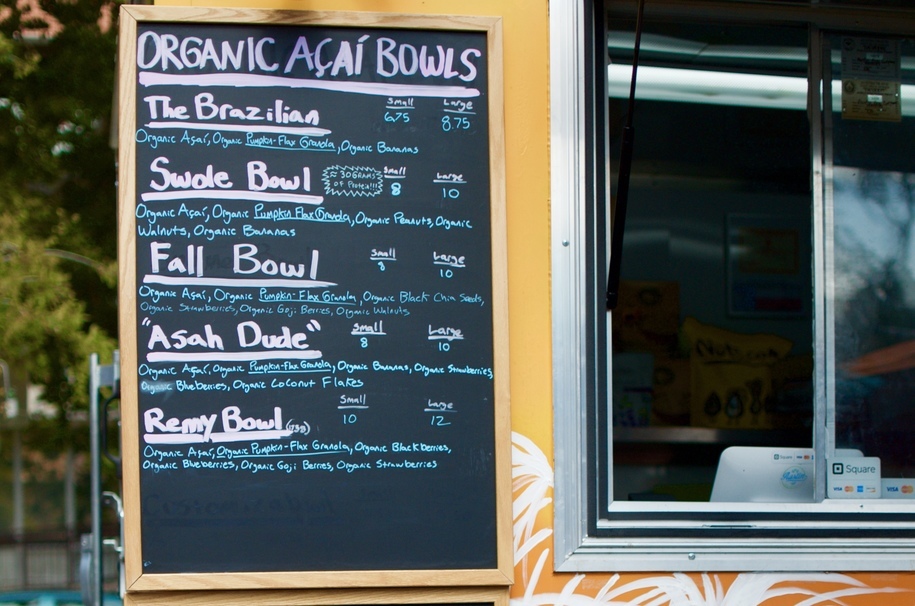 ORGANIC AÇAÍ BOWLS
The Brazilian Small Large
6.75 8.75
Organic Açaí, Organic Pumpkin-Flax Granola, Organic Bananas
Swole Bowl ≈ 30 GRAMS of Protein!!! Small Large
8 10
Organic Açaí, Organic Pumpkin Flax Granola, Organic Peanuts, Organic
Walnuts, Organic Bananas
Fall Bowl Small Large
8 10
Organic Açaí, Organic Pumpkin-Flax Granola, Organic Black Chia Seeds,
Organic Strawberries, Organic Goji Berries, Organic Walnuts
"Asah Dude" Small Large
8 10
Organic Açaí, Organic Pumpkin-Flax Granola, Organic Bananas, Organic Strawberries,
Organic Blueberries, Organic Coconut Flakes
Remy Bowl Small Large
10 12
Organic Açaí, Organic Pumpkin-Flax Granola, Organic Blackberries,
Organic Blueberries, Organic Goji Berries, Organic Strawberries
Square
VISA
VISA